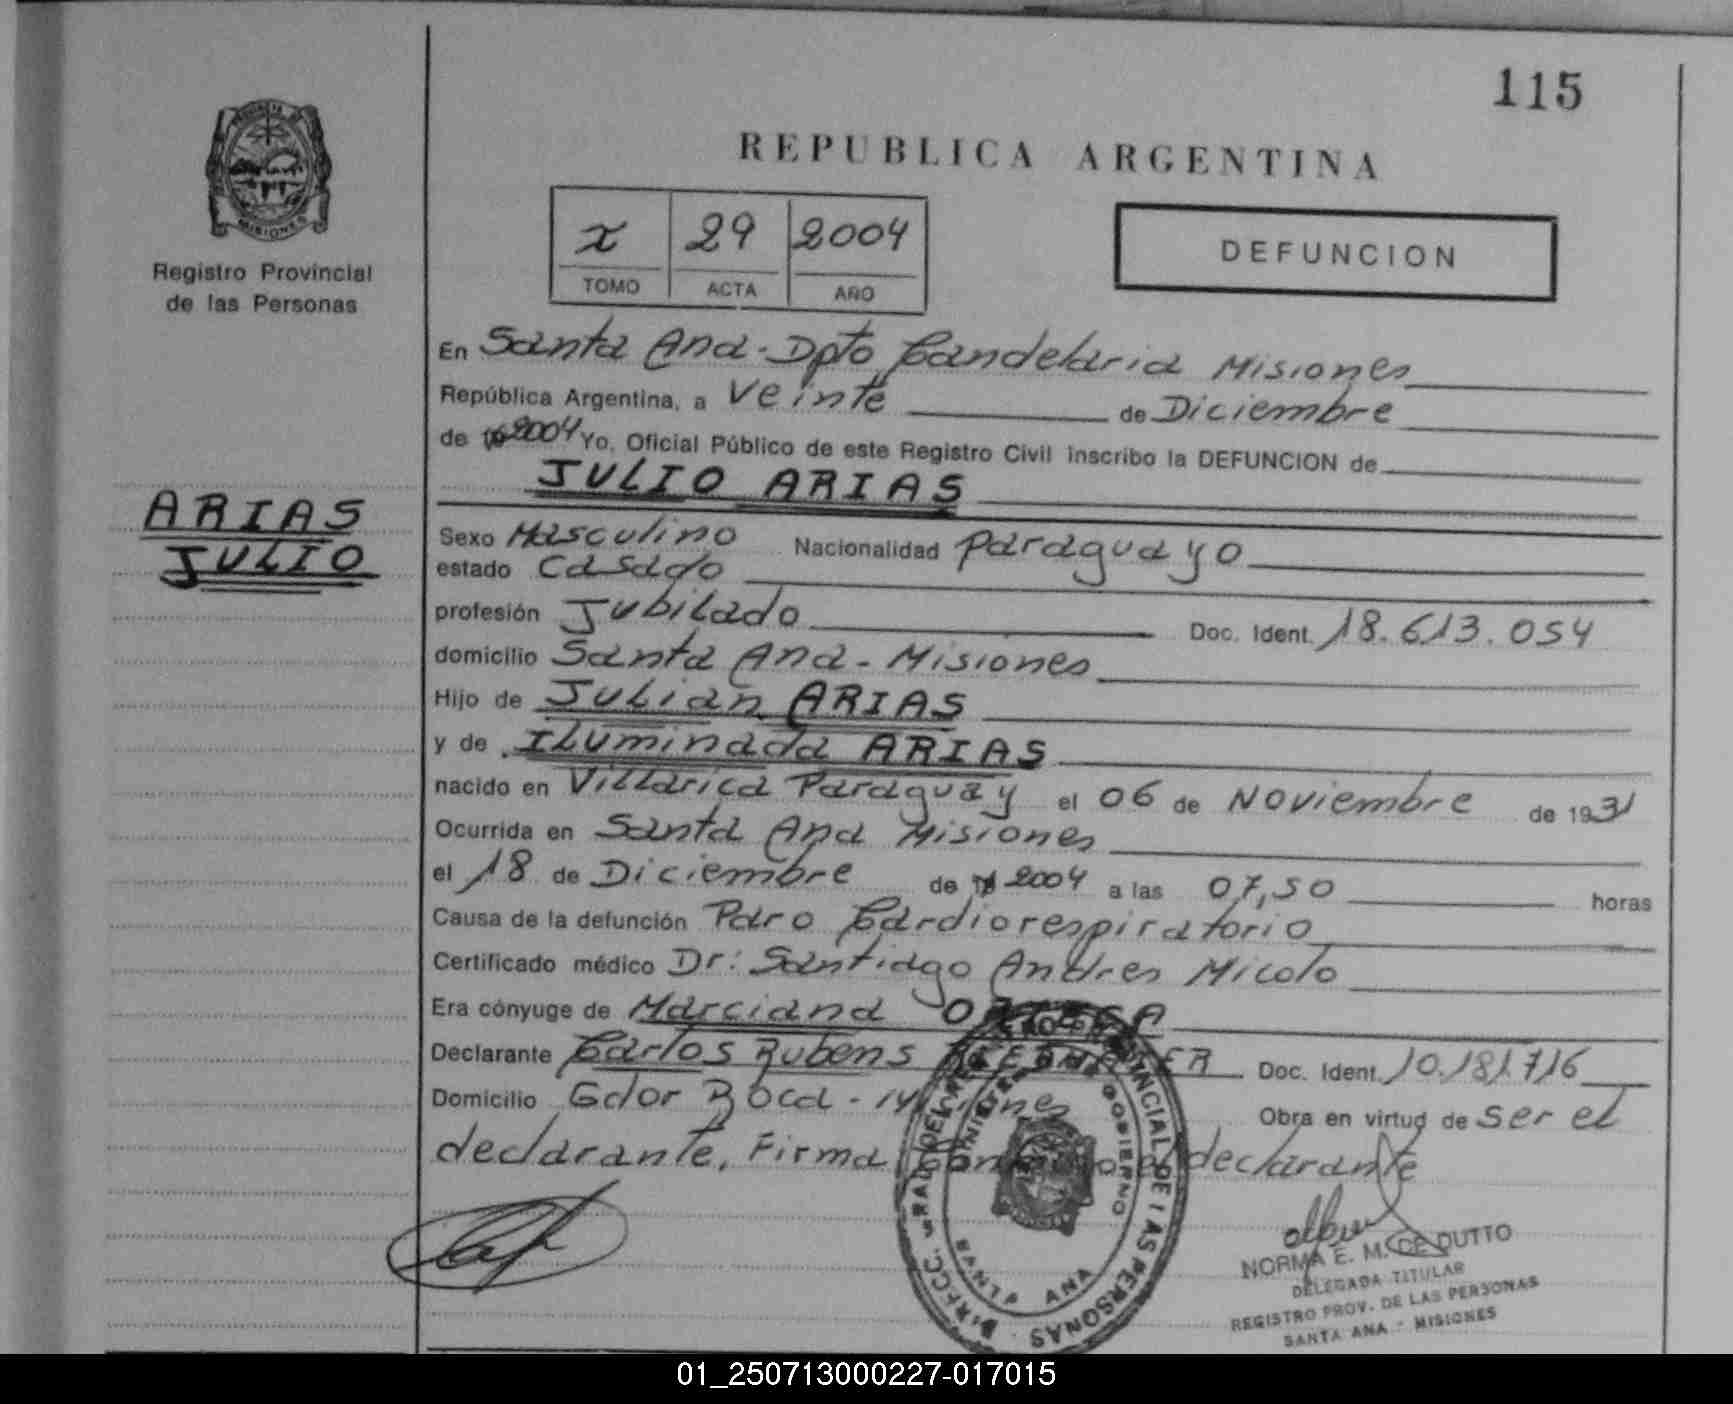 115
REPUBLICA ARGENTINA
PROVINCIA DE
MISIONES
Registro Provincial
de las Personas
I 29 2004
TOMO ACTA AÑO
DEFUNCION
En Santa Ana - Dpto Candelaria Misiones
República Argentina, a Veinte de Diciembre
de 2004 Yo, Oficial Público de este Registro Civil inscribo la DEFUNCION de
JULIO ARIAS
ARIAS
JULIO
Sexo Masculino Nacionalidad Paraguayo
estado Casado
profesión Jubilado Doc. Ident. 18.613.054
domicilio Santa Ana - Misiones
Hijo de Julian ARIAS
y de Iluminada ARIAS
nacido en Villarica Paraguay el 06 de Noviembre de 1931
Ocurrida en Santa Ana Misiones
el 18 de Diciembre de 2004 a las 07,50 horas
Causa de la defunción Paro Cardiorespiratorio
Certificado médico Dr: Santiago Andres Micolo
Era cónyuge de Marciana
Declarante Carlos Rubens Doc. Ident. 10.181.716
Domicilio Gdor Roca - Misiones Obra en virtud de ser el
declarante, Firma el declarante
PROVINCIAL DE LAS PERSONAS
GOBIERNO
SANTA ANA
NORMA E. M. DE DUTTO
DELEGADA TITULAR
REGISTRO PROV. DE LAS PERSONAS
SANTA ANA - MISIONES
01_250713000227-017015